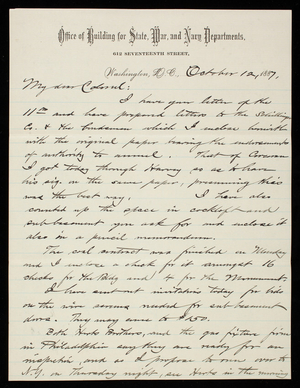 Office of Building for State, War, and Navy Departments,
612 SEVENTEENTH STREET,
Washington, D.C., October 12, 1887.
My dear Colonel:
I have your letter of the
11th and have prepared letters to the
Co. & the which I inclose herewith
with the original paper bearing the endorsements
of authority to annul. That of Corcoran
I got today through Harvey so as to have
his sig. on the same paper, presuming that
was the best way. I have also
counted up the space in cockloft and
subbasement you ask for and inclose it
also in a pencil memorandum.
The coal contract was finished on Monday
and I inclose a check for it amongst 16
checks for the Bldg and 4 for the Monument.
I have sent out invitations today for bids
on the iron needed for subbasement
doors. They may come to $150.
Both Hecks Brothers, and the gas fixture firm
in Philadelphia say they are ready for an
inspection, and as I propose to run over to
N.Y. on Thursday night, see Hecks in the morning